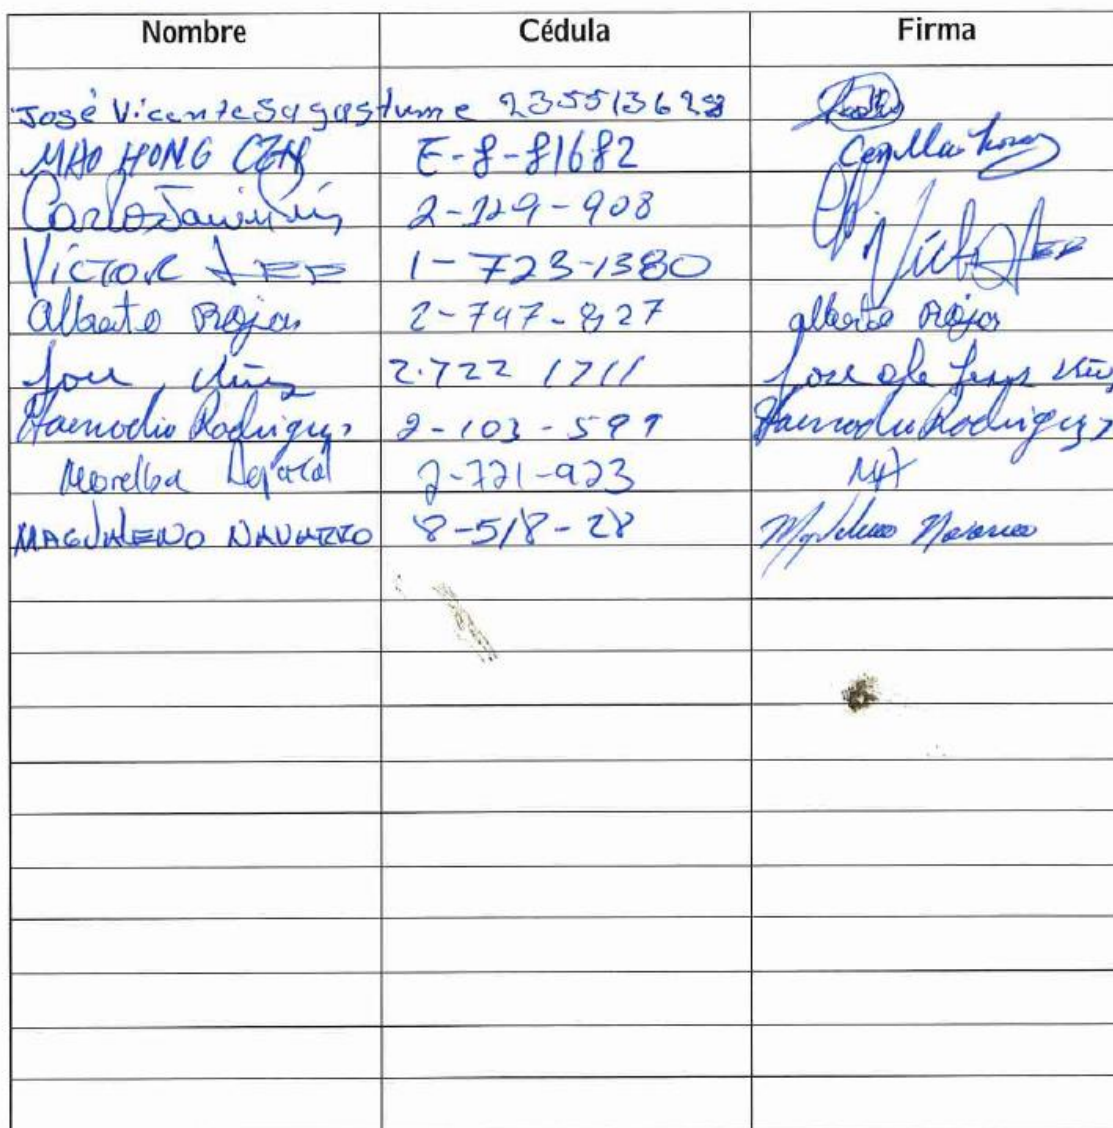 Nombre Cédula Firma
José Vicente Sagastume 235513628
MAO HONG CEN E-8-81682
Carlos Javier 2-129-908
VíCTOR 1-723-1380
Alberto Rojas 2-747-827 alberto Rojas
Jose 2-722 1711 Jose de
Haemodio Rodriguez 2-103-599 Haemodio Rodriguez
Morelba 2-721-923
MAGDALENO NAVARRO 8-518-28 Magdaleno Navarro